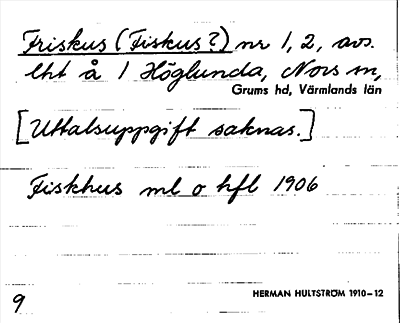 Friskus (Fiskus?) nr 1, 2, avs.
lht å 1 Höglunda, Nors sn,
Grums hd, Värmlands län
[Uttalsuppgift saknas.]
Fiskhus ml o hfl 1906
HERMAN HULTSTRÖM 1910-12
9